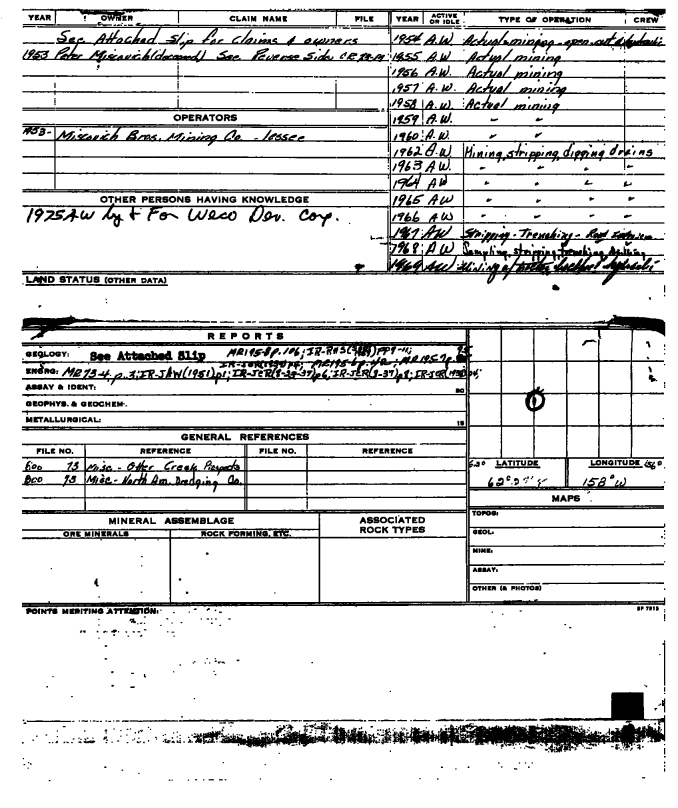 YEAR OWNER CLAIM NAME FILE
See Attached Slip for Claims & owners
1953 Peter Miscovich (deceased) See Reverse Side
OPERATORS
1953- Miscovich Bros. Mining Co. - lessee
OTHER PERSONS HAVING KNOWLEDGE
1975 AW by & For Weco Dev. Corp.
LAND STATUS (OTHER DATA)
YEAR ACTIVE OR IDLE TYPE OF OPERATION CREW
1954 A.W. Actual mining - open cut &
1955 A.W. Actual mining
1956 A.W. Actual mining
1957 A.W. Actual mining
1958 A.W. Actual mining
1959 A.W. " "
1960 A.W. " "
1962 A.W Mining, stripping, digging drains
1963 A.W. " " " "
1964 AW " " " "
1965 AW " " " "
1966 AW " " " "
1967 AW Stripping - Trenching - Road
1968 AW Sampling, stripping, trenching,
1969 AW Mining
REPORTS
GEOLOGY: See Attached Slip MR195-8 p.106;
ENGRG: MR73-4, p.3; IR-JAW(1951)p1;
ASSAY & IDENT:
GEOPHYS. & GEOCHEM.
METALLURGICAL:
GENERAL REFERENCES
FILE NO. REFERENCE FILE NO. REFERENCE
600 73 Misc - Otter Creek Prospects
800 73 Misc - North Am. Dredging Co.
LATITUDE LONGITUDE
158°W
MAPS
TOPOG:
GEOL:
MINE:
ASSAY:
OTHER (& PHOTOS)
MINERAL ASSEMBLAGE ASSOCIATED ROCK TYPES
ORE MINERALS ROCK FORMING, ETC.
POINTS MERITING ATTENTION: